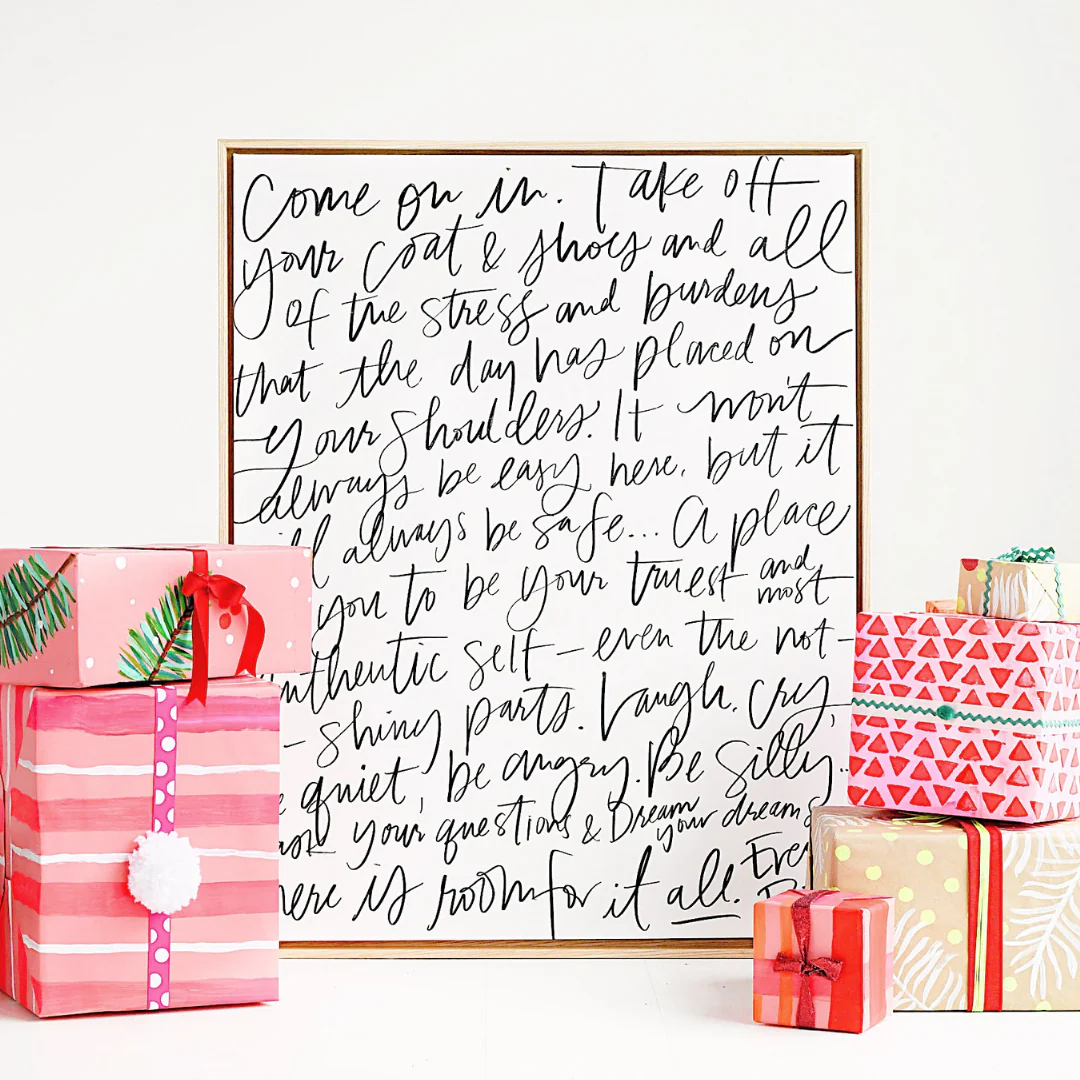 Come on in. Take off
your coat & shoes and all
of the stress and burdens
that the day has placed on
your shoulders. It won't
always be easy here, but it
always be safe... A place
you to be your truest and most
self - even the not-
- shiny parts. Laugh, cry,
quiet, be angry. Be silly..
your questions & Dream your dreams
is room for it all.